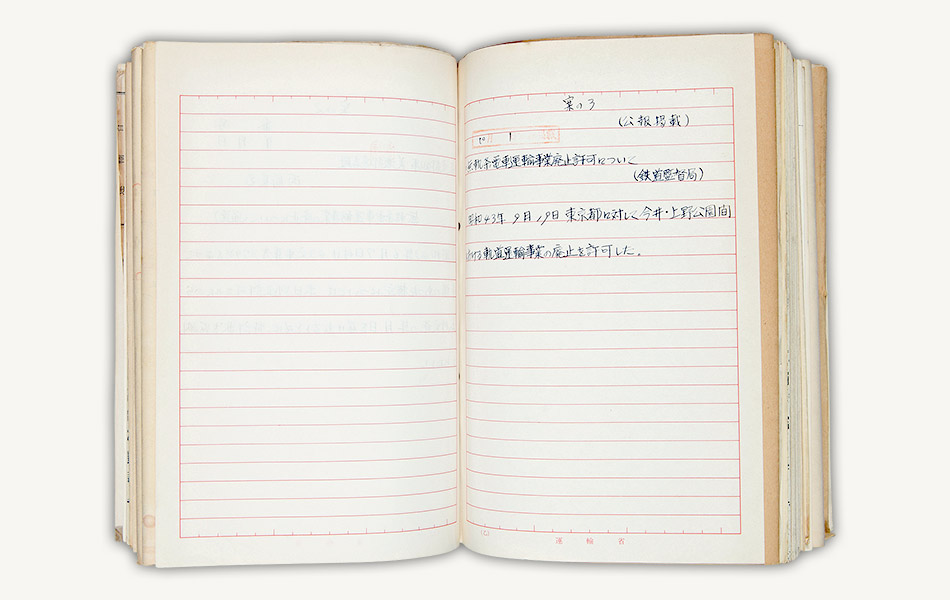 案の3
(公報掲載)
1
無軌条電車運輸事業廃止許可について
(鉄道監督局)
昭和43年9月19日東京都に対して今井・上野公園間
における軌道運輸事業の廃止を許可した。
運輸省